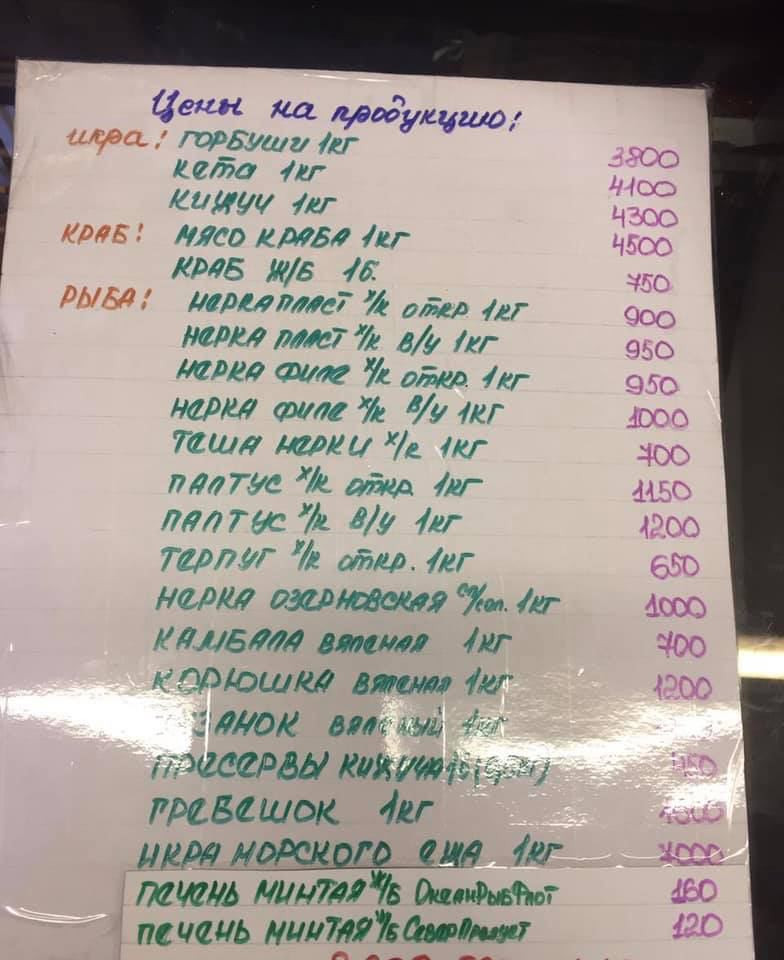 Цены на продукцию:
икра: ГОРБУШИ 1кг 3800
кета 1кг 4100
кижуч 1кг 4300
КРАБ: МЯСО КРАБА 1кг 4500
КРАБ Ж/Б 1б. 750
РЫБА: нерка пласт х/к откр 1кг 900
нерка пласт х/к в/у 1кг 950
нерка филе х/к откр. 1кг 950
нерка филе х/к в/у 1кг 1000
теша нерки х/к 1кг 700
палтус х/к откр. 1кг 1150
палтус х/к в/у 1кг 1200
терпуг х/к откр. 1кг 650
нерка озерновская сл/сол. 1кг 1000
камбала вяленая 1кг 700
корюшка вяленая 1кг 1200
вяленый 1кг
пресервы кижуча
гребешок 1кг
икра морского ежа 1кг
печень минтая ж/б ОкеанРыбФлот 160
печень минтая ж/б СеверПродукт 120